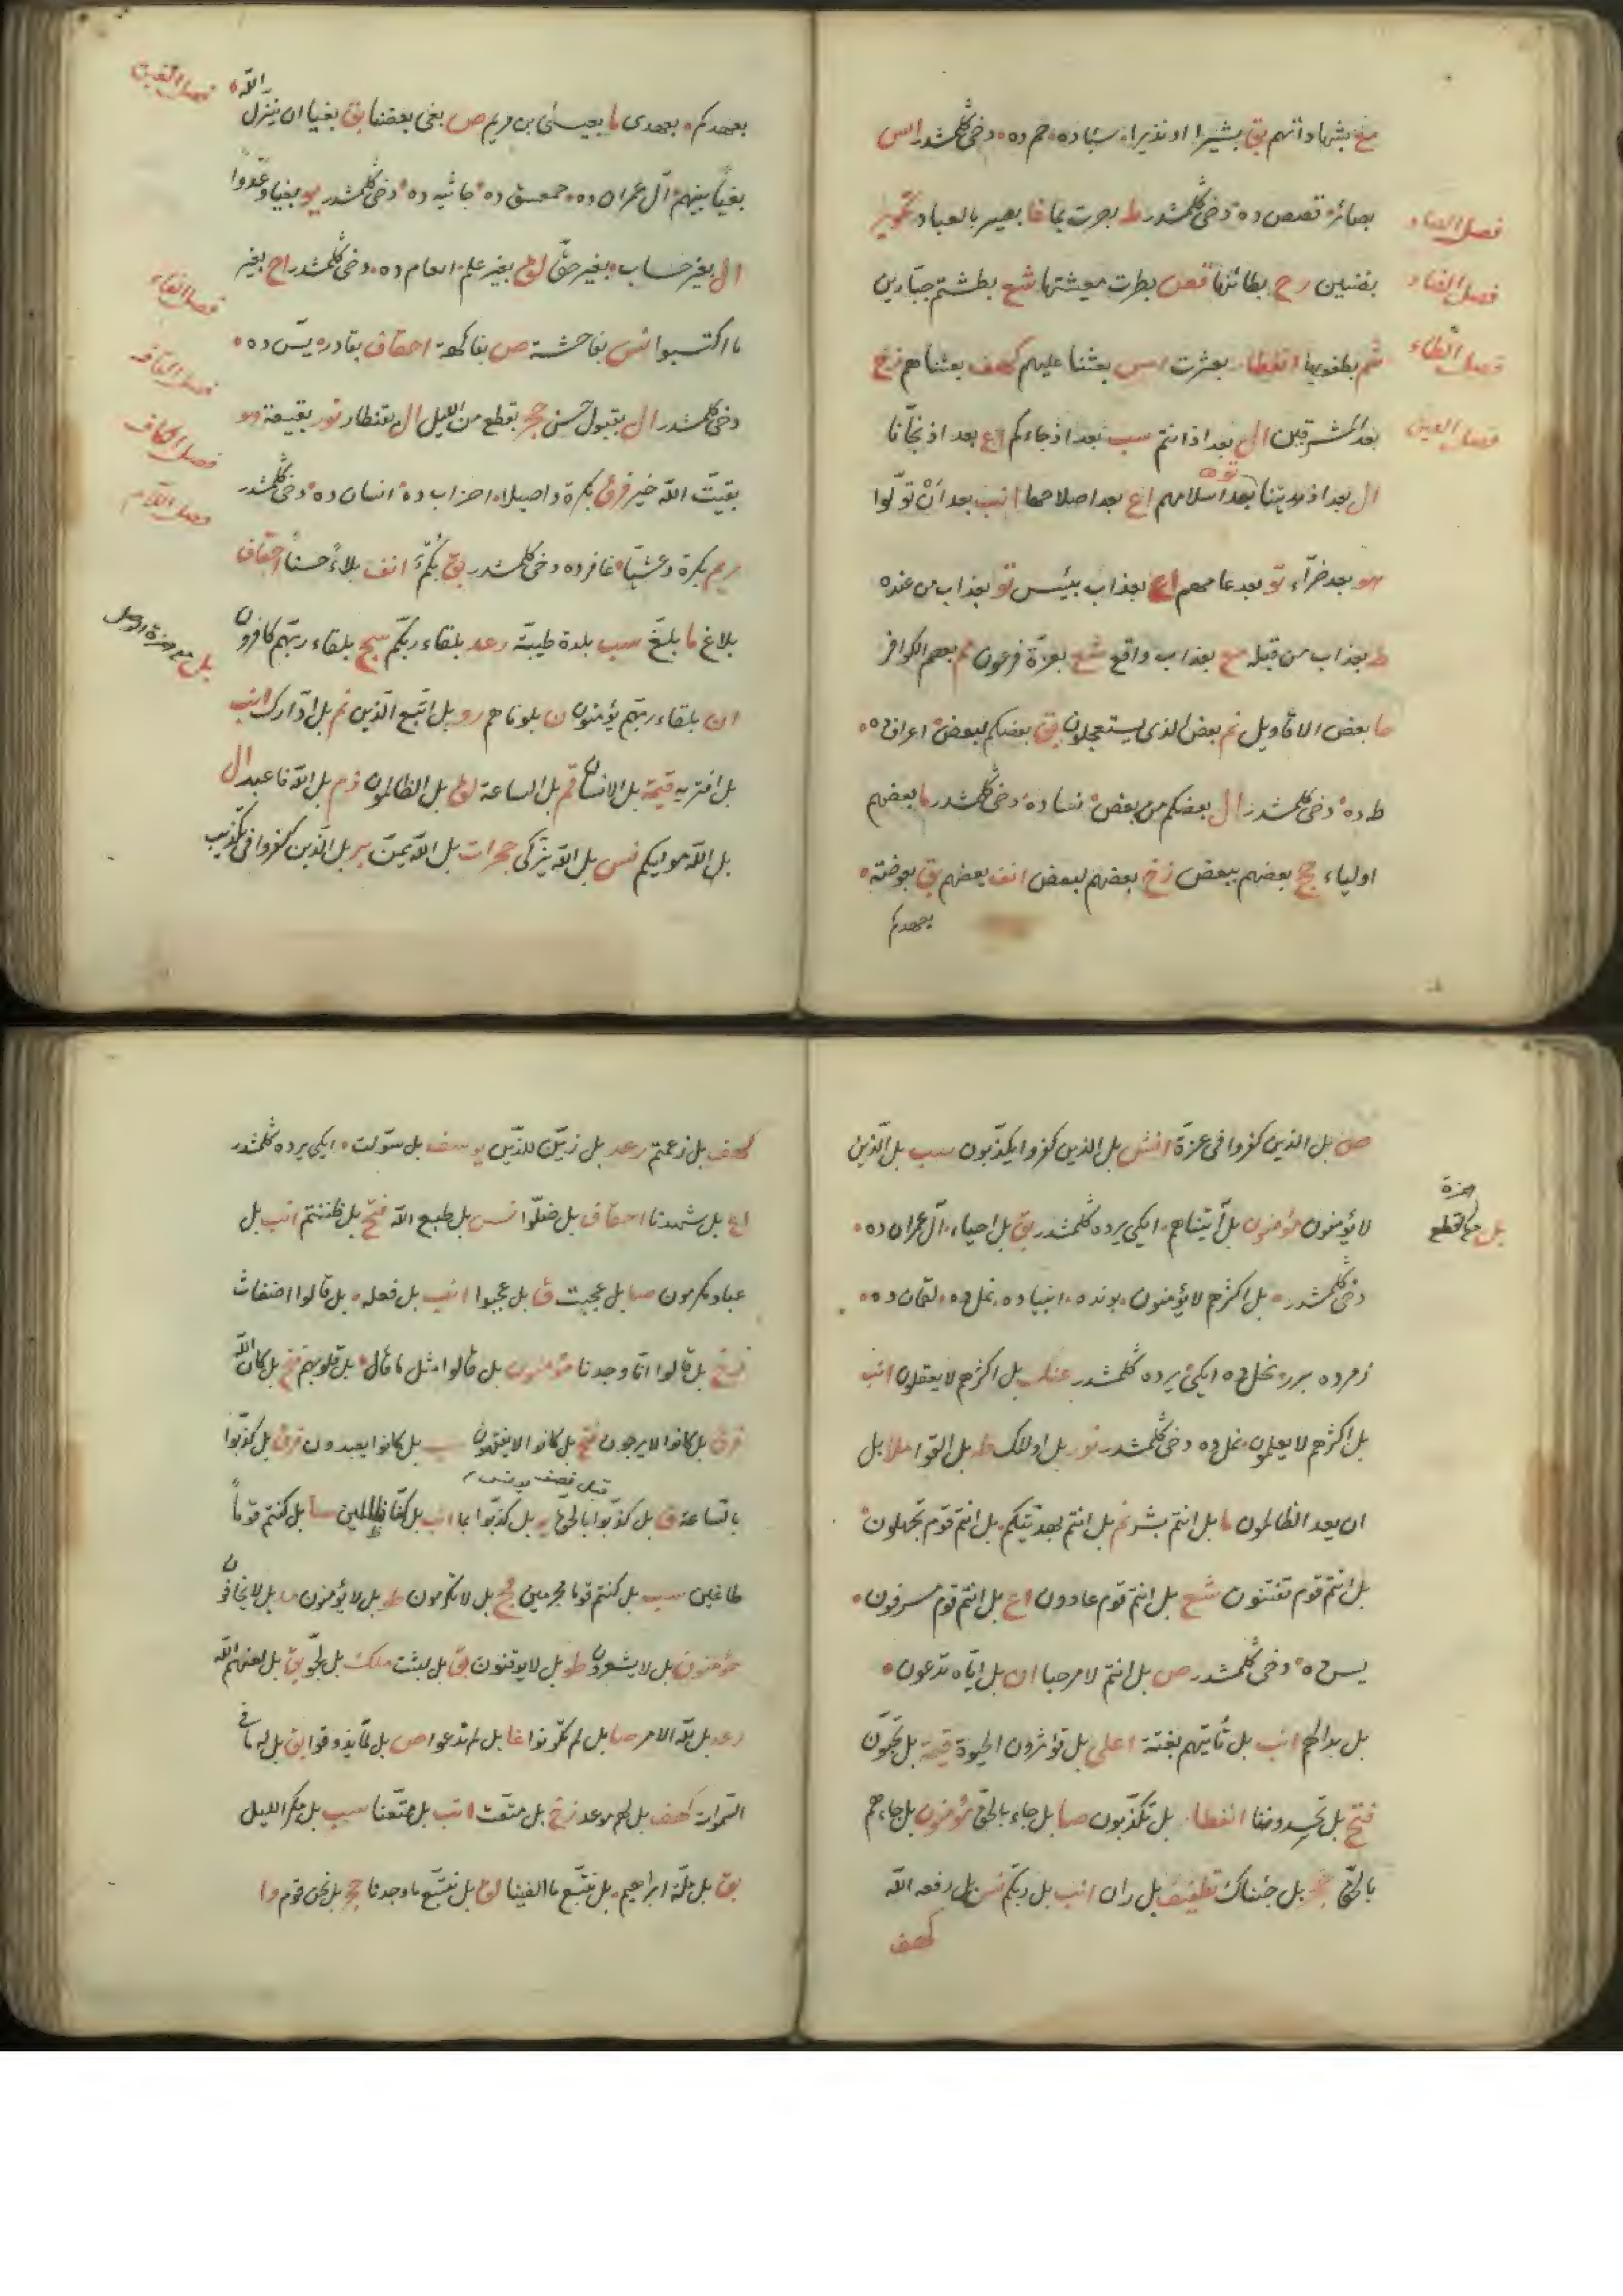 مع بشهاداتهم بق بشيرا او نذيرا، سبا ده حم ده دخى كلمشدر اس
فصل الصاد
بصائر قصص ده دخى كلمشدر ط بصرت بما غا بصير بالعباد تكوير
فصل الضاد
بضنين رح بطائنها قص بطرت معيشتها شع بطشتم جبارين
فصل الطاء
شم بطغويها انفطار بعثرت اس بعثنا عليهم كهف بعثناهم زخ
فصل العين
بعد المشرقين ال بعد اذ انتم سب بعد اذ جاءكم اع بعد اذ نجانا
ال بعد اذ هديتنا توبه بعد اسلامهم اع بعد اصلاحها انب بعد ان تولوا
هو بعد ضراء تو بعد عامهم اع بعذاب بئيس تو بعذاب من عنده
ط بعذاب من قبله مع بعذاب واقع شع بعزة فرعون مم بعصم الكوافر
حا بعض الاقاويل نم بعض الذى يستعجلون بق بعضكم لبعض اعراف ده
ط ده دخى كلمشدر ال بعضكم من بعض نساده دخى كلمشدر ما بعضهم
اولياء حج بعضهم ببعض زخ بعضهم لبعض انف بعضهم بق بعوضة
بعهدكم
فصل الغين
بعهدكم بعهدى ما بعيسى بن مريم ص بغى بعضنا بق بغيا ان ينزل الله
بغيا بينهم آل عمران ده حمعسق ده جاثيه ده دخى كلمشدر يو بغيا وعدوا
ال بغير حساب بغير حق لق بغير علم انعام ده دخى كلمشدر اح بغير
فصل الفاء
ما اكتسبوا نس بفاحشة ص بفاكهة احقاف بقادر يس ده
فصل القاف
دخى كلمشدر ال بقبول حسن حج بقطع من الليل ال بقنطار نور بقيعة هو
فصل الكاف
بقيت الله خير فرق بكرة واصيلا احزاب ده انسان ده دخى كلمشدر
فصل اللام
مريم بكرة وعشيا غافر ده دخى كلمشدر بق بكم انف بلاء حسنا احقاف
بلاغ ما بلغ سب بلدة طيبة رعد بلقاء ربكم سج بلقاء ربهم كافرون
بل مع همزة الوصل
ان بلقاء ربهم يؤمنون ن بلوناهم رو بل اتبع الذين نم بل ادارك انب
بل افتريه قيمة بل الانسان قم بل الساعة لق بل الظالمون زم بل الله فاعبد ال
بل الله موليكم نس بل الله يزكى حجرات بل الله يمن بر بل الذين كفروا فى تكذيب
ص بل الذين كفروا فى عزة انش بل الذين كفروا يكذبون سب بل الذين
بل مع همزة القطع
لا يؤمنون مؤمنون بل آتيناهم ايكى يرده كلمشدر بق بل احياء آل عمران ده
دخى كلمشدر بل اكثرهم لا يؤمنون بونده انبيا ده نمل ده لقمان ده
زمر ده برر نحل ده ايكى يرده كلمشدر عنك بل اكثرهم لا يعقلون انب
بل اكثرهم لا يعلمون نمل ده دخى كلمشدر نور بل اولئك ط بل القوا ملا بل
ان يعد الظالمون ما بل انتم بشر نم بل انتم بهديتكم بل انتم قوم تجهلون
بل انتم قوم تفتنون شع بل انتم قوم عادون اع بل انتم قوم مسرفون
يس ده دخى كلمشدر ص بل انتم لا مرحبا ان بل اياه تدعون
بل بدا لهم انب بل تأتيهم بغتة اعلى بل تؤثرون الحيوة قيمة بل تحبون
فتح بل تحسدوننا انفطار بل تكذبون صا بل جاء بالحق مؤمنون بل جاءهم
بالحق حجر بل جئناك تطفيف بل ران انب بل ربكم نس بل رفعه الله
كهف
كهف بل زعمتم رعد بل زين للذين يوسف بل سولت ايكى يرده كلمشدر
اع بل شهدنا احقاف بل ضلوا نس بل طبع الله فتح بل ظننتم انب بل
عباد مكرمون صا بل عجبت ق بل عجبوا انب بل فعله بل قالوا اضغاث
زخ بل قالوا انا وجدنا مؤمنون بل قالوا مثل ما قال بل قلوبهم فتح بل كان الله
فرق بل كانوا لا يرجون فتح بل كانوا لا يفقهون سب بل كانوا يعبدون فرق بل كذبوا
بالساعة ق بل كذبوا بالحق يو بل كذبوا بما انب بل كنا ظالمين صا بل كنتم قوما
طاغين سب بل كنتم قوما مجرمين فج بل لا تكرمون ط بل لا يؤمنون مد بل لا يخافون
مؤمنون بل لا يشعرون طو بل لا يوقنون بق بل لبثت ملك بل لجوا بق بل لعنهم الله
رعد بل لله الامر صا بل لم تكونوا غا بل لم ندعوا ص بل لما يذوقوا بق بل له ما فى
السموات كهف بل لهم موعد زخ بل متعت انب بل متعنا سب بل مكر الليل
بق بل ملة ابراهيم بل نتبع ما الفينا لق بل نتبع ما وجدنا حجر بل نحن قوم وا